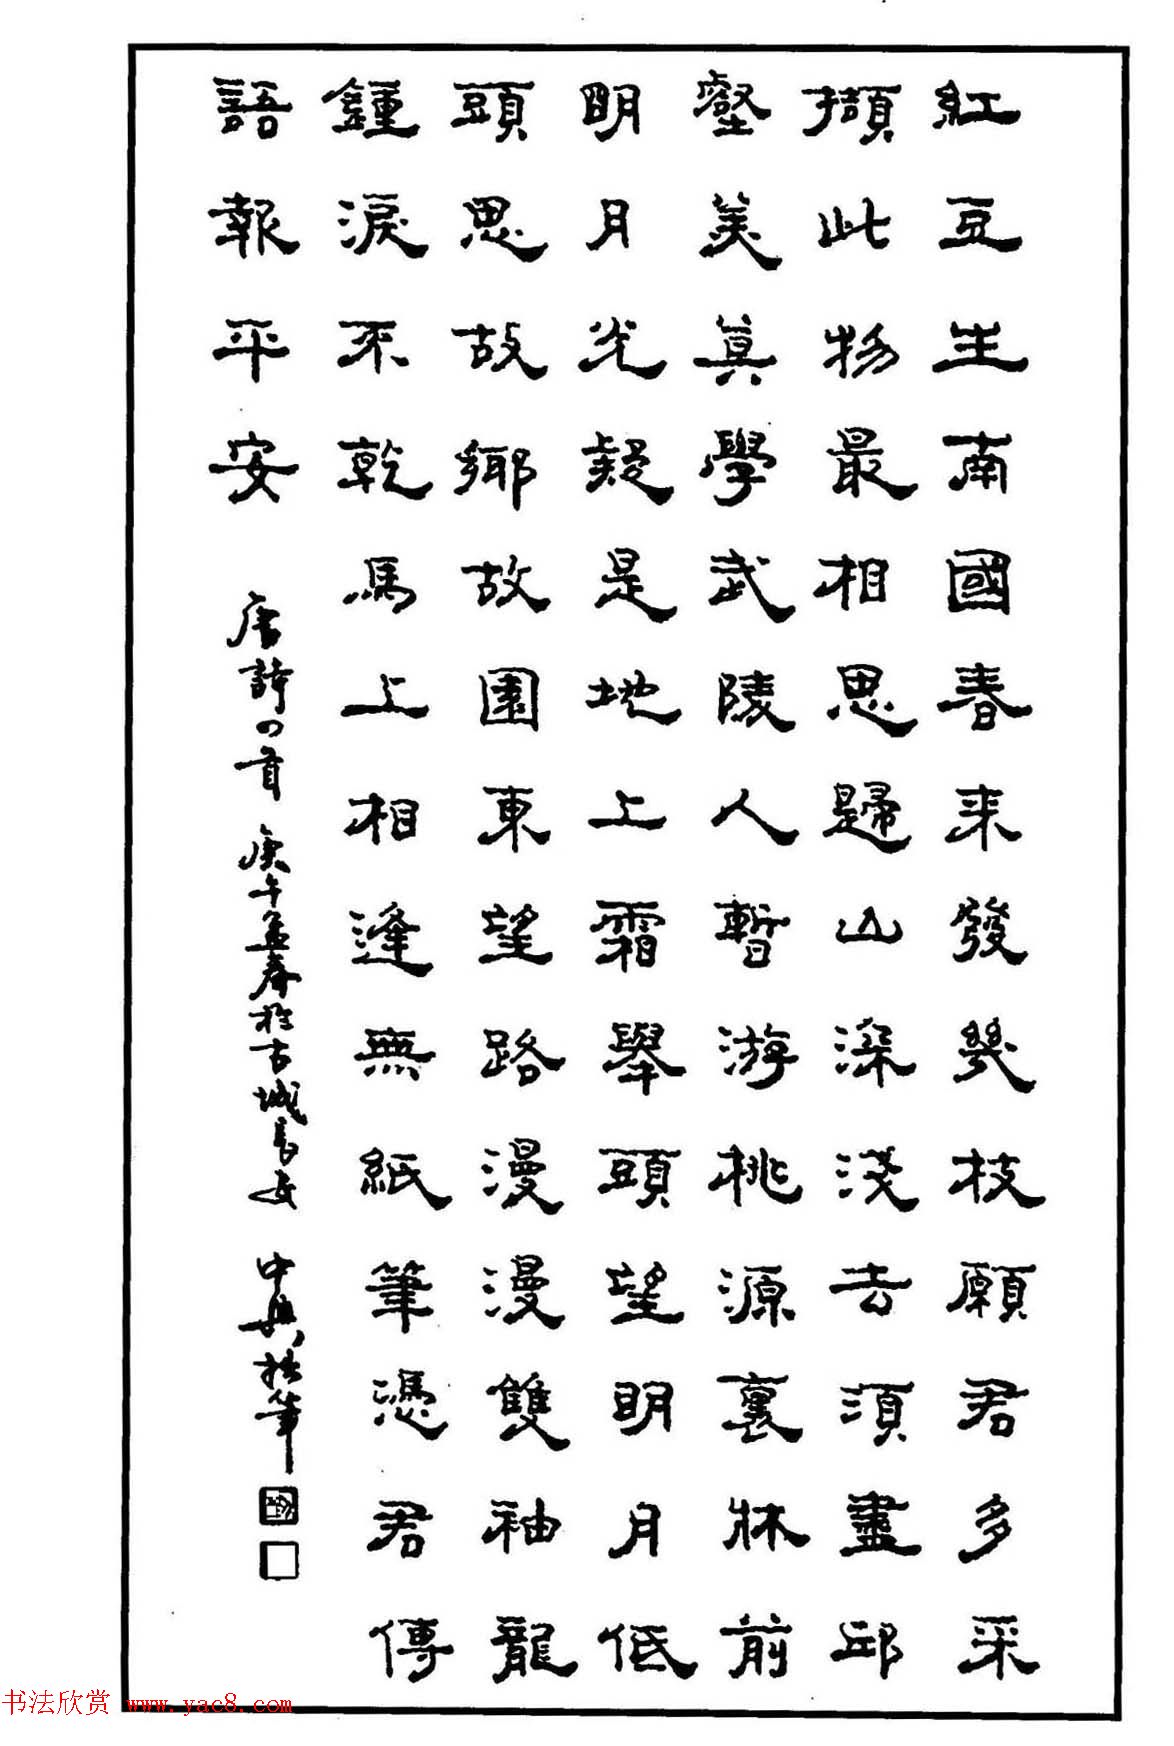 紅豆生南國春来發幾枝願君多采
擷此物最相思歸山深淺去須盡邱
壑美莫學武陵人暫游桃源裏牀前
明月光疑是地上霜舉頭望明月低
頭思故鄉故園東望路漫漫雙袖龍
鍾淚不乾馬上相逢無紙筆憑君傳
語報平安
唐詩四首 庚午孟春於古城長安 中興拙筆
书法欣赏 www.yac8.com